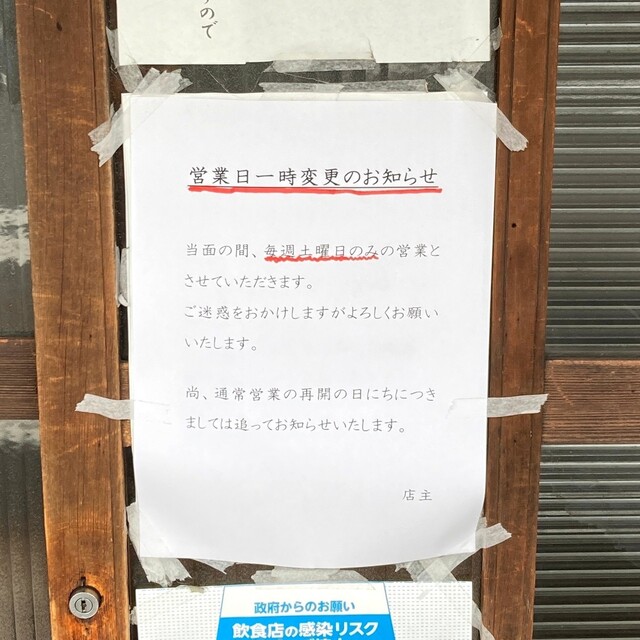 ので
営業日一時変更のお知らせ
当面の間、毎週土曜日のみの営業と
させていただきます。
ご迷惑をおかけしますがよろしくお願い
いたします。
尚、通常営業の再開の日にちにつき
ましては追ってお知らせいたします。
店主
政府からのお願い
飲食店の感染リスク